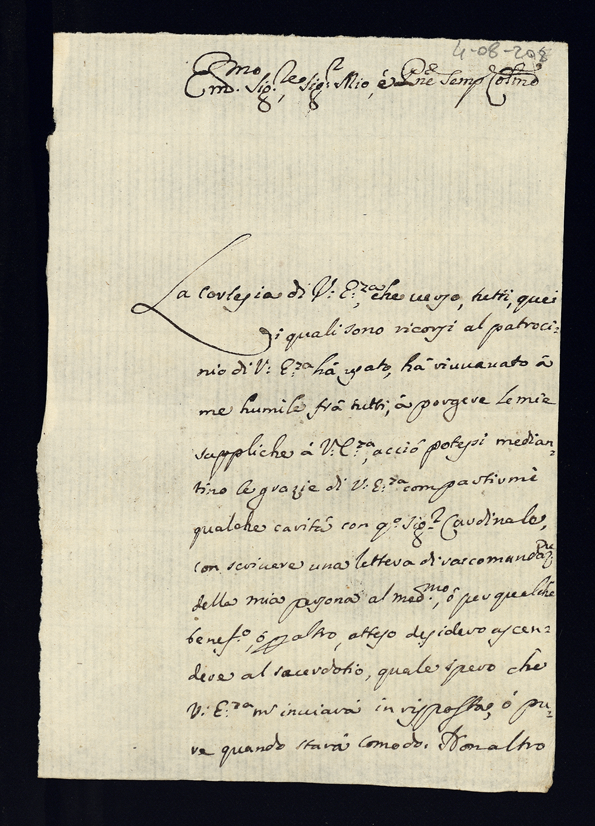 4-08-208
Em.mo Sig.re Sig.r Mio, é Pne Semp Colmo
La cortesia di V: E:za, che verso, tutti, quei
i quali sono ricorsi al patroci:
nio di V: E:za há usato, há
me humile frá tutti, á porgere le mie
suppliche á V: E:za, acció potessi median-
tino le grazie di V: E:za compartirmi
qualche caritá con q.o Sig.r Cardinale,
con scrivere una lettera di raccomand
della mia persona al med.mo, ó per qualche
benef.o, ó altro, atteso desidero ascen-
dere al sacerdotio, quale spero che
V: E:za m' inviará in risposta, ó pu-
re quando stará comodo. Non altro